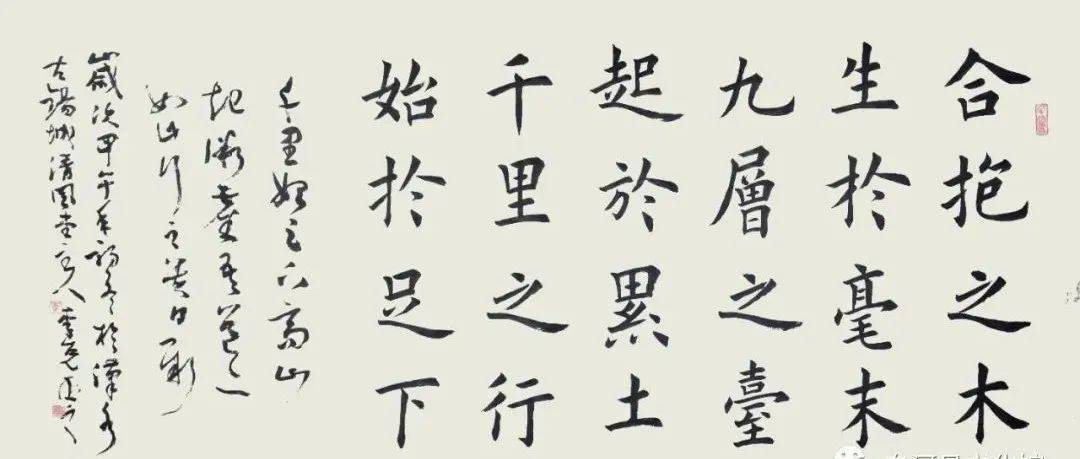 合抱之木
生於毫末
九層之臺
起於累土
千里之行
始於足下
千里始足下高山
起微塵吾道亦
如此行之貴日新
歲次甲午年初冬於漢水
古城清風堂主人